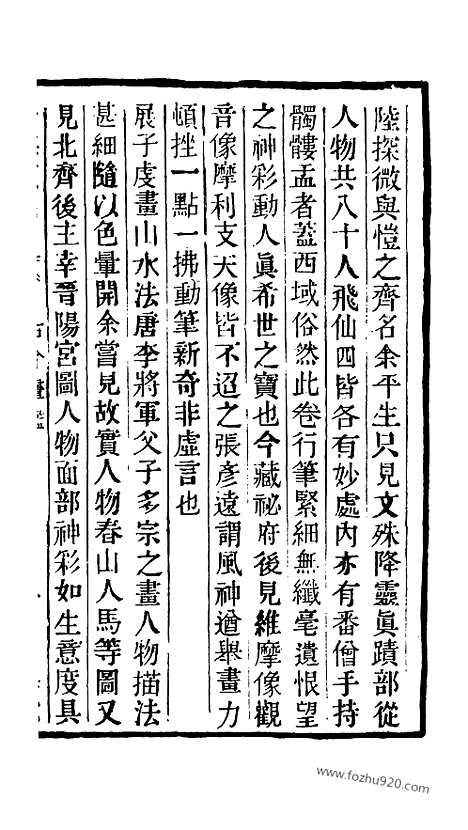 陸探微與愷之齊名余平生只見文殊降靈眞蹟部從
人物共八十人飛仙四皆各有妙處內亦有番僧手持
髑髏盂者蓋西域俗然此卷行筆緊細無纖毫遺恨望
之神彩動人眞希世之寶也今藏祕府後見維摩像觀
音像摩利支天像皆不迨之張彥遠謂風神遒舉畫力
頓挫一點一拂動筆新奇非虛言也
展子虔畫山水法唐李將軍父子多宗之畫人物描法
甚細隨以色暈開余嘗見故實人物春山人馬等圖又
見北齊後主幸晉陽宮圖人物面部神彩如生意度具
www.fozhu920.com